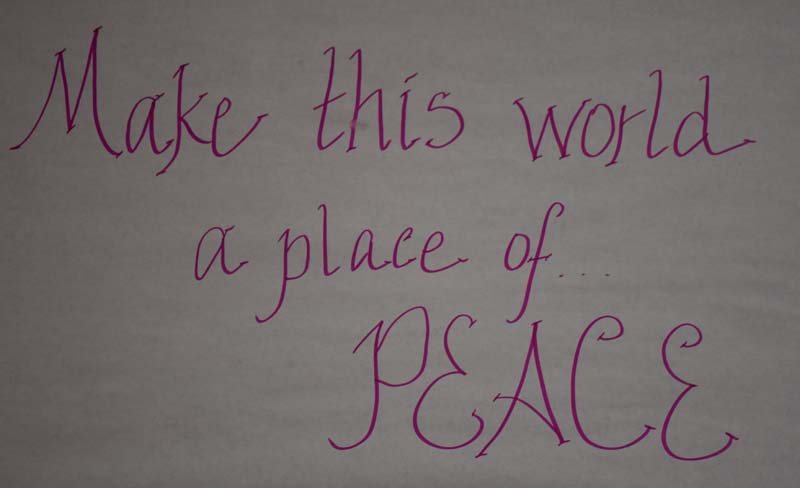 Make this world
a place of...
PEACE